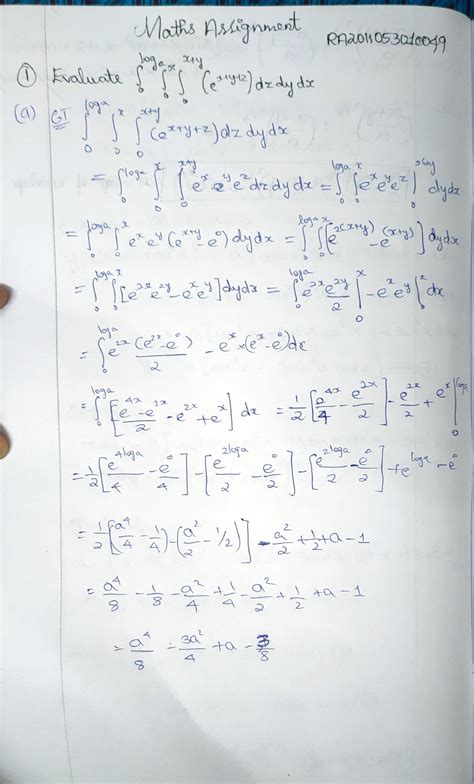 Maths Assignment
RA2011053010049
① Evaluate ∫₀^{loga} ∫₀^{x} ∫₀^{x+y} (e^{x+y+z}) dz dy dx
(a) GT ∫₀^{loga} ∫₀^{x} ∫₀^{x+y} (e^{x+y+z}) dz dy dx
= ∫₀^{loga} ∫₀^{x} ∫₀^{x+y} e^x e^y e^z dz dy dx = ∫₀^{loga} ∫₀^{x} e^x e^y e^z |₀^{x+y} dy dx
= ∫₀^{loga} ∫₀^{x} e^x e^y (e^{x+y} - e^0) dy dx = ∫₀^{loga} ∫₀^{x} [e^{2(x+y)} - e^{(x+y)}] dy dx
= ∫₀^{loga} ∫₀^{x} [e^{2x} e^{2y} - e^x e^y] dy dx = ∫₀^{loga} e^{2x} e^{2y}/2 |₀^{x} - e^x e^y |₀^{x} dx
= ∫₀^{loga} e^{2x} (e^{2x} - e^0)/2 - e^x × (e^x - e^0) dx
= ∫₀^{loga} [(e^{4x} - e^{2x})/2 - e^{2x} + e^x] dx = 1/2 [e^{4x}/4 - e^{2x}/2] - e^{2x}/2 + e^x |₀^{loga}
= 1/2 [e^{4loga}/4 - e^0/4] - [e^{2loga}/2 - e^0/2] - [e^{2loga}/2 - e^0/2] + e^{loga} - e^0
= 1/2 [(a^4/4 - 1/4) - (a^2/2 - 1/2)] - a^2/2 + 1/2 + a - 1
= a^4/8 - 1/8 - a^2/4 + 1/4 - a^2/2 + 1/2 + a - 1
= a^4/8 - 3a^2/4 + a - 3/8